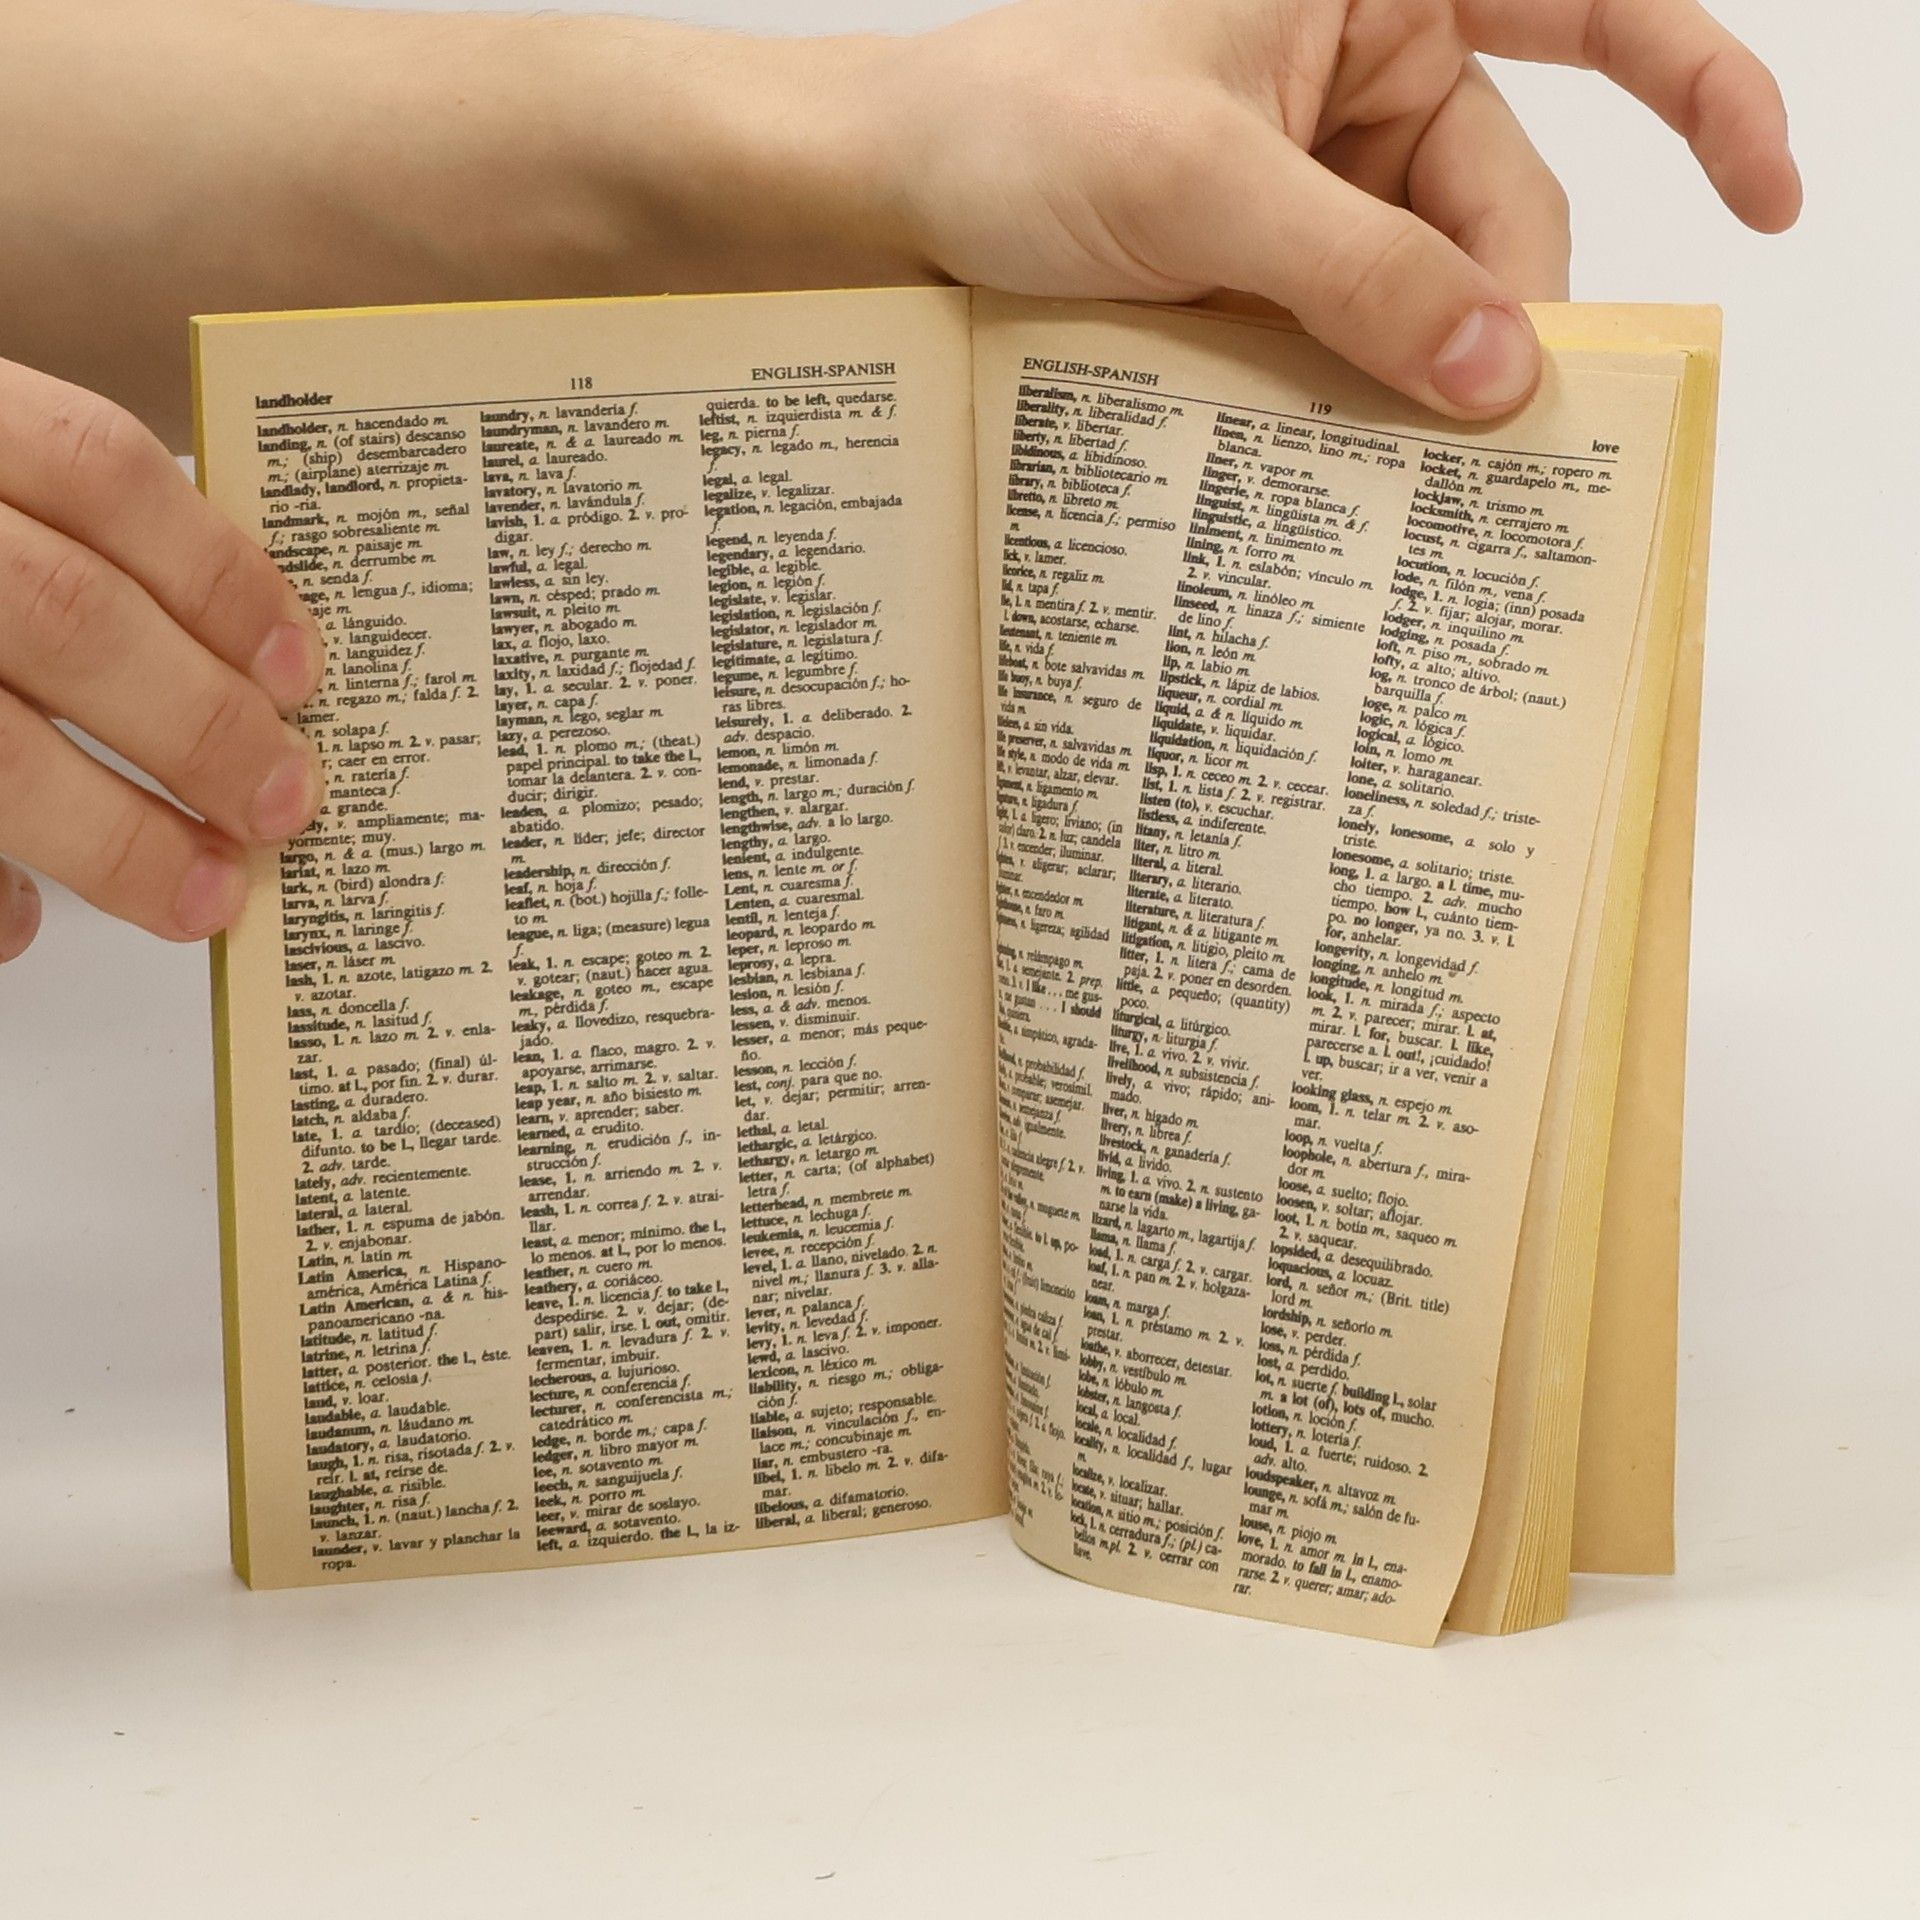 landholder
118
ENGLISH-SPANISH
landholder, n. hacendado m.
landing, n. (of stairs) descanso
m.; (ship) desembarcadero
m.; (airplane) aterrizaje m.
landlady, landlord, n. propieta-
rio -ria.
landmark, n. mojón m., señal
f.; rasgo sobresaliente m.
n. paisaje m.
n. derrumbe m.
n. senda f.
n. lengua f., idioma;
m.
a. lánguido.
v. languidecer.
n. languidez f.
n. lanolina f.
n. linterna f.; farol m.
n. regazo m.; falda f. 2.
lamer.
n. solapa f.
1. n. lapso m. 2. v. pasar;
caer en error.
n. ratería f.
manteca f.
a. grande.
v. ampliamente; ma-
yormente; muy.
largo, n. & a. (mus.) largo m.
lariat, n. lazo m.
lark, n. (bird) alondra f.
larva, n. larva f.
laryngitis, n. laringitis f.
larynx, n. laringe f.
lascivious, a. lascivo.
laser, n. láser m.
lash, 1. n. azote, latigazo m. 2.
v. azotar.
lass, n. doncella f.
lassitude, n. lasitud f.
lasso, 1. n. lazo m. 2. v. enla-
zar.
last, 1. a. pasado; (final) úl-
timo. at l., por fin. 2. v. durar.
lasting, a. duradero.
latch, n. aldaba f.
late, 1. a. tardío; (deceased)
difunto. to be l., llegar tarde.
2. adv. tarde.
lately, adv. recientemente.
latent, a. latente.
lateral, a. lateral.
lather, 1. n. espuma de jabón.
2. v. enjabonar.
Latin, n. latín m.
Latin America, n. Hispano-
américa, América Latina f.
Latin American, a. & n. his-
panoamericano -na.
latitude, n. latitud f.
latrine, n. letrina f.
latter, a. posterior. the l., éste.
lattice, n. celosía f.
laud, v. loar.
laudable, a. laudable.
laudanum, n. láudano m.
laudatory, a. laudatorio.
laugh, 1. n. risa, risotada f. 2. v.
reír. l. at, reírse de.
laughable, a. risible.
laughter, n. risa f.
launch, 1. n. (naut.) lancha f. 2.
v. lanzar.
launder, v. lavar y planchar la
ropa.
laundry, n. lavandería f.
laundryman, n. lavandero m.
laureate, n. & a. laureado m.
laurel, a. laureado.
lava, n. lava f.
lavatory, n. lavatorio m.
lavender, n. lavándula f.
lavish, 1. a. pródigo. 2. v. pro-
digar.
law, n. ley f.; derecho m.
lawful, a. legal.
lawless, a. sin ley.
lawn, n. césped; prado m.
lawsuit, n. pleito m.
lawyer, n. abogado m.
lax, a. flojo, laxo.
laxative, n. purgante m.
laxity, n. laxidad f.; flojedad f.
lay, 1. a. secular. 2. v. poner.
layer, n. capa f.
layman, n. lego, seglar m.
lazy, a. perezoso.
lead, 1. n. plomo m.; (theat.)
papel principal. to take the l.,
tomar la delantera. 2. v. con-
ducir; dirigir.
leaden, a. plomizo; pesado;
abatido.
leader, n. líder; jefe; director
m.
leadership, n. dirección f.
leaf, n. hoja f.
leaflet, n. (bot.) hojilla f.; folle-
to m.
league, n. liga; (measure) legua
f.
leak, 1. n. escape; goteo m. 2.
v. gotear; (naut.) hacer agua.
leakage, n. goteo m., escape
m., pérdida f.
leaky, a. llovedizo, resquebra-
jado.
lean, 1. a. flaco, magro. 2. v.
apoyarse, arrimarse.
leap, 1. n. salto m. 2. v. saltar.
leap year, n. año bisiesto m.
learn, v. aprender; saber.
learned, a. erudito.
learning, n. erudición f., in-
strucción f.
lease, 1. n. arriendo m. 2. v.
arrendar.
leash, 1. n. correa f. 2. v. atrai-
llar.
least, a. menor; mínimo. the l.,
lo menos. at l., por lo menos.
leather, n. cuero m.
leathery, a. coriáceo.
leave, 1. n. licencia f. to take l.,
despedirse. 2. v. dejar; (de-
part) salir, irse. l. out, omitir.
leaven, 1. n. levadura f. 2. v.
fermentar, imbuir.
lecherous, a. lujurioso.
lecture, n. conferencia f.
lecturer, n. conferencista m.;
catedrático m.
ledge, n. borde m.; capa f.
ledger, n. libro mayor m.
lee, n. sotavento m.
leech, n. sanguijuela f.
leek, n. porro m.
leer, v. mirar de soslayo.
leeward, a. sotavento.
left, a. izquierdo. the l., la iz-
quierda. to be left, quedarse.
leftist, n. izquierdista m. & f.
leg, n. pierna f.
legacy, n. legado m., herencia
f.
legal, a. legal.
legalize, v. legalizar.
legation, n. legación, embajada
f.
legend, n. leyenda f.
legendary, a. legendario.
legible, a. legible.
legion, n. legión f.
legislate, v. legislar.
legislation, n. legislación f.
legislator, n. legislador m.
legislature, n. legislatura f.
legitimate, a. legítimo.
legume, n. legumbre f.
leisure, n. desocupación f.; ho-
ras libres.
leisurely, 1. a. deliberado. 2.
adv. despacio.
lemon, n. limón m.
lemonade, n. limonada f.
lend, v. prestar.
length, n. largo m.; duración f.
lengthen, v. alargar.
lengthwise, adv. a lo largo.
lengthy, a. largo.
lenient, a. indulgente.
lens, n. lente m. or f.
Lent, n. cuaresma f.
Lenten, a. cuaresmal.
lentil, n. lenteja f.
leopard, n. leopardo m.
leper, n. leproso m.
leprosy, a. lepra.
lesbian, n. lesbiana f.
lesion, n. lesión f.
less, a. & adv. menos.
lessen, v. disminuir.
lesser, a. menor; más peque-
ño.
lesson, n. lección f.
lest, conj. para que no.
let, v. dejar; permitir; arren-
dar.
lethal, a. letal.
lethargic, a. letárgico.
lethargy, n. letargo m.
letter, n. carta; (of alphabet)
letra f.
letterhead, n. membrete m.
lettuce, n. lechuga f.
leukemia, n. leucemia f.
levee, n. recepción f.
level, 1. a. llano, nivelado. 2. n.
nivel m.; llanura f. 3. v. alla-
nar; nivelar.
lever, n. palanca f.
levity, n. levedad f.
levy, 1. n. leva f. 2. v. imponer.
lewd, a. lascivo.
lexicon, n. léxico m.
liability, n. riesgo m.; obliga-
ción f.
liable, a. sujeto; responsable.
liaison, n. vinculación f., en-
lace m.; concubinaje m.
liar, n. embustero -ra.
libel, 1. n. libelo m. 2. v. difa-
mar.
libelous, a. difamatorio.
liberal, a. liberal; generoso.
ENGLISH-SPANISH
119
love
liberalism, n. liberalismo m.
liberality, n. liberalidad f.
liberate, v. libertar.
liberty, n. libertad f.
libidinous, a. libidinoso.
librarian, n. bibliotecario m.
library, n. biblioteca f.
libretto, n. libreto m.
license, n. licencia f.; permiso
m.
licentious, a. licencioso.
lick, v. lamer.
licorice, n. regaliz m.
lid, n. tapa f.
lie, 1. n. mentira f. 2. v. mentir.
l. down, acostarse, echarse.
lieutenant, n. teniente m.
life, n. vida f.
lifeboat, n. bote salvavidas m.
life buoy, n. buya f.
life insurance, n. seguro de
vida m.
a. sin vida.
life preserver, n. salvavidas m.
life style, n. modo de vida m.
v. levantar, alzar, elevar.
n. ligamento m.
n. ligadura f.
1. a. ligero; liviano; (in
claro. 2. n. luz; candela
3. v. encender; iluminar.
v. aligerar; aclarar;
n. encendedor m.
n. faro m.
n. ligereza; agilidad
n. relámpago m.
a. semejante. 2. prep.
I like . . . me gus-
I should
a. simpático, agrada-
n. probabilidad f.
a. probable; verosímil.
comparar; asemejar.
n. semejanza f.
igualmente.
linear, a. linear, longitudinal.
linen, n. lienzo, lino m.; ropa
blanca.
liner, n. vapor m.
linger, v. demorarse.
lingerie, n. ropa blanca f.
linguist, n. lingüista m. & f.
linguistic, a. lingüístico.
liniment, n. linimento m.
lining, n. forro m.
link, 1. n. eslabón; vínculo m.
2. v. vincular.
linoleum, n. linóleo m.
linseed, n. linaza f.; simiente
de lino f.
lint, n. hilacha f.
lion, n. león m.
lip, n. labio m.
lipstick, n. lápiz de labios.
liqueur, n. cordial m.
liquid, a. & n. líquido m.
liquidate, v. liquidar.
liquidation, n. liquidación f.
liquor, n. licor m.
lisp, 1. n. ceceo m. 2. v. cecear.
list, 1. n. lista f. 2. v. registrar.
listen (to), v. escuchar.
listless, a. indiferente.
litany, n. letanía f.
liter, n. litro m.
literal, a. literal.
literary, a. literario.
literate, a. literato.
literature, n. literatura f.
litigant, n. & a. litigante m.
litigation, n. litigio, pleito m.
litter, 1. n. litera f.; cama de
paja. 2. v. poner en desorden.
little, a. pequeño; (quantity)
poco.
liturgical, a. litúrgico.
liturgy, n. liturgia f.
live, 1. a. vivo. 2. v. vivir.
livelihood, n. subsistencia f.
lively, a. vivo; rápido; ani-
mado.
liver, n. hígado m.
livery, n. librea f.
livestock, n. ganadería f.
livid, a. lívido.
living, 1. a. vivo. 2. n. sustento
m. to earn (make) a living, ga-
narse la vida.
lizard, n. lagarto m., lagartija f.
llama, n. llama f.
load, 1. n. carga f. 2. v. cargar.
loaf, 1. n. pan m. 2. v. holgaza-
near.
loam, n. marga f.
loan, 1. n. préstamo m. 2. v.
prestar.
loathe, v. aborrecer, detestar.
lobby, n. vestíbulo m.
lobe, n. lóbulo m.
lobster, n. langosta f.
local, a. local.
locale, n. localidad f.
locality, n. localidad f., lugar
m.
localize, v. localizar.
locate, v. situar; hallar.
location, n. sitio m.; posición f.
lock, 1. n. cerradura f.; (pl.) ca-
bellos m.pl. 2. v. cerrar con
llave.
locker, n. cajón m.; ropero m.
locket, n. guardapelo m., me-
dallón m.
lockjaw, n. trismo m.
locksmith, n. cerrajero m.
locomotive, n. locomotora f.
locust, n. cigarra f., saltamon-
tes m.
locution, n. locución f.
lode, n. filón m., vena f.
lodge, 1. n. logia; (inn) posada
f. 2. v. fijar; alojar, morar.
lodger, n. inquilino m.
lodging, n. posada f.
loft, n. piso m., sobrado m.
lofty, a. alto; altivo.
log, n. tronco de árbol; (naut.)
barquilla f.
loge, n. palco m.
logic, n. lógica f.
logical, a. lógico.
loin, n. lomo m.
loiter, v. haraganear.
lone, a. solitario.
loneliness, n. soledad f.; triste-
za f.
lonely, lonesome, a. solo y
triste.
lonesome, a. solitario; triste.
long, 1. a. largo. a l. time, mu-
cho tiempo. 2. adv. mucho
tiempo. how l., cuánto tiem-
po. no longer, ya no. 3. v. l.
for, anhelar.
longevity, n. longevidad f.
longing, n. anhelo m.
longitude, n. longitud m.
look, 1. n. mirada f.; aspecto
m. 2. v. parecer; mirar. l. at,
mirar. l. for, buscar. l. like,
parecerse a. l. out!, ¡cuidado!
l. up, buscar; ir a ver, venir a
ver.
looking glass, n. espejo m.
loom, 1. n. telar m. 2. v. aso-
mar.
loop, n. vuelta f.
loophole, n. abertura f., mira-
dor m.
loose, a. suelto; flojo.
loosen, v. soltar; aflojar.
loot, 1. n. botín m., saqueo m.
2. v. saquear.
lopsided, a. desequilibrado.
loquacious, a. locuaz.
lord, n. señor m.; (Brit. title)
lord m.
lordship, n. señorío m.
lose, v. perder.
loss, n. pérdida f.
lost, a. perdido.
lot, n. suerte f. building l., solar
m. a lot (of), lots of, mucho.
lotion, n. loción f.
lottery, n. lotería f.
loud, 1. a. fuerte; ruidoso. 2.
adv. alto.
loudspeaker, n. altavoz m.
lounge, n. sofá m.; salón de fu-
mar m.
louse, n. piojo m.
love, 1. n. amor m. in l., ena-
morado. to fall in l., enamo-
rarse. 2. v. querer; amar; ado-
rar.